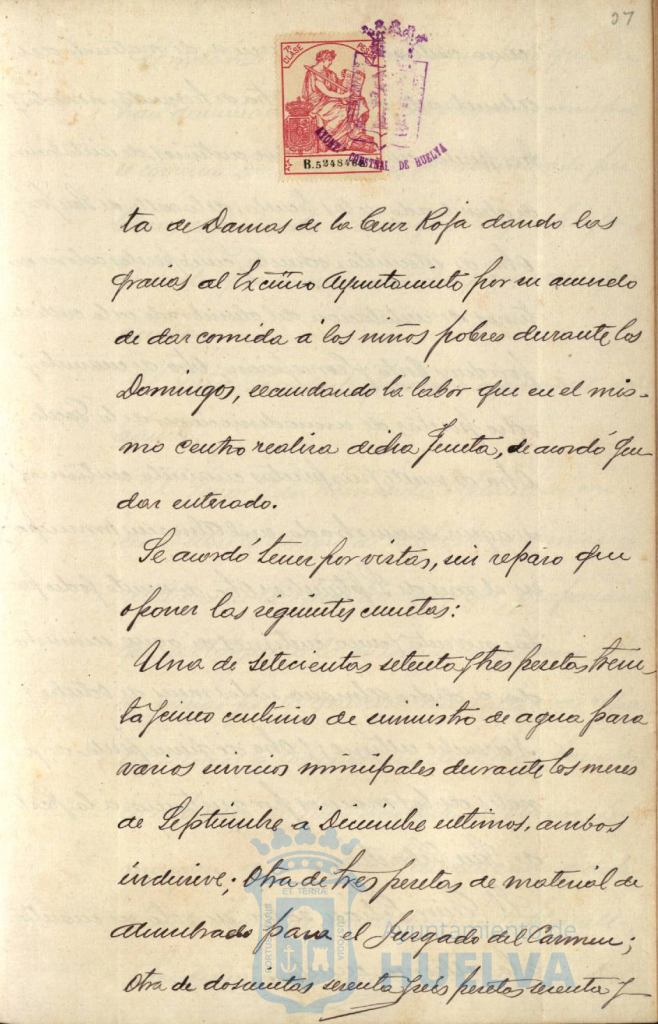 37
7ª CLASE
B.5248486
DE HUELVA
ta de Damas de la Cruz Roja dando las
gracias al Excmo Ayuntamiento por su acuerdo
de dar comida á los niños pobres durante los
Domingos, secundando la labor que en el mis-
mo centro realiza dicha Junta, se acordó que
dar enterado.
Se acordó tener por vistas, sin reparo que
oponer las siguientes cuentas:
Una de setecientas setenta y tres pesetas trein
ta y cinco centimos de suministro de agua para
varios servicios municipales durante los meses
de Septiembre á Diciembre ultimos, ambos
inclusive; Otra de tres pesetas de material de
alumbrado para el Juzgado del Carmen;
Otra de doscientas sesenta y seis pesetas sesenta y
ET TERRÆ
PORTUS MARIS
CUSTODIA
Ayuntamiento de
HUELVA